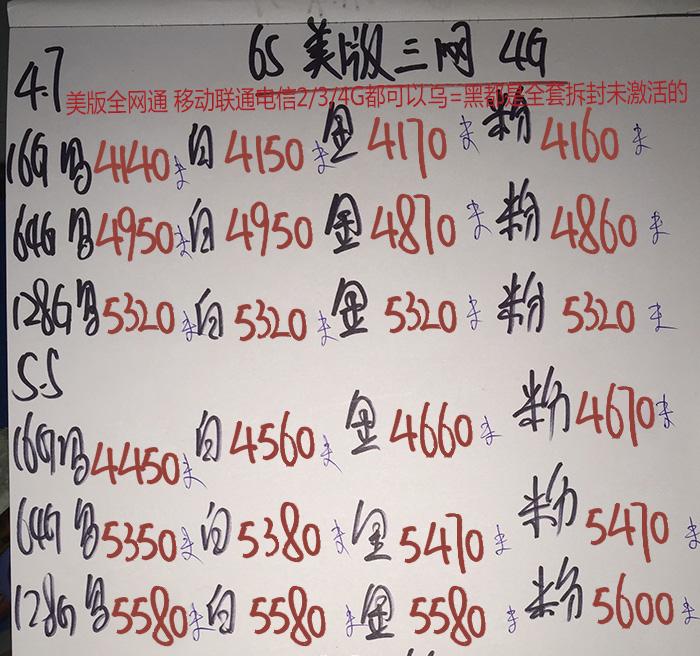 6S 美版三网 4G
4.7
美版全网通 移动联通电信2/3/4G都可以乌=黑都是全套拆封未激活的
16G 乌4140未 白4150未 金4170未 粉4160未
64G 乌4950未 白4950未 金4870未 粉4860未
128G 乌5320未 白5320未 金5320未 粉5320未
5.5
16G 乌4450未 白4560未 金4660未 粉4670未
64G 乌5350未 白5380未 金5470未 粉5470未
128G 乌5580未 白5580未 金5580未 粉5600未